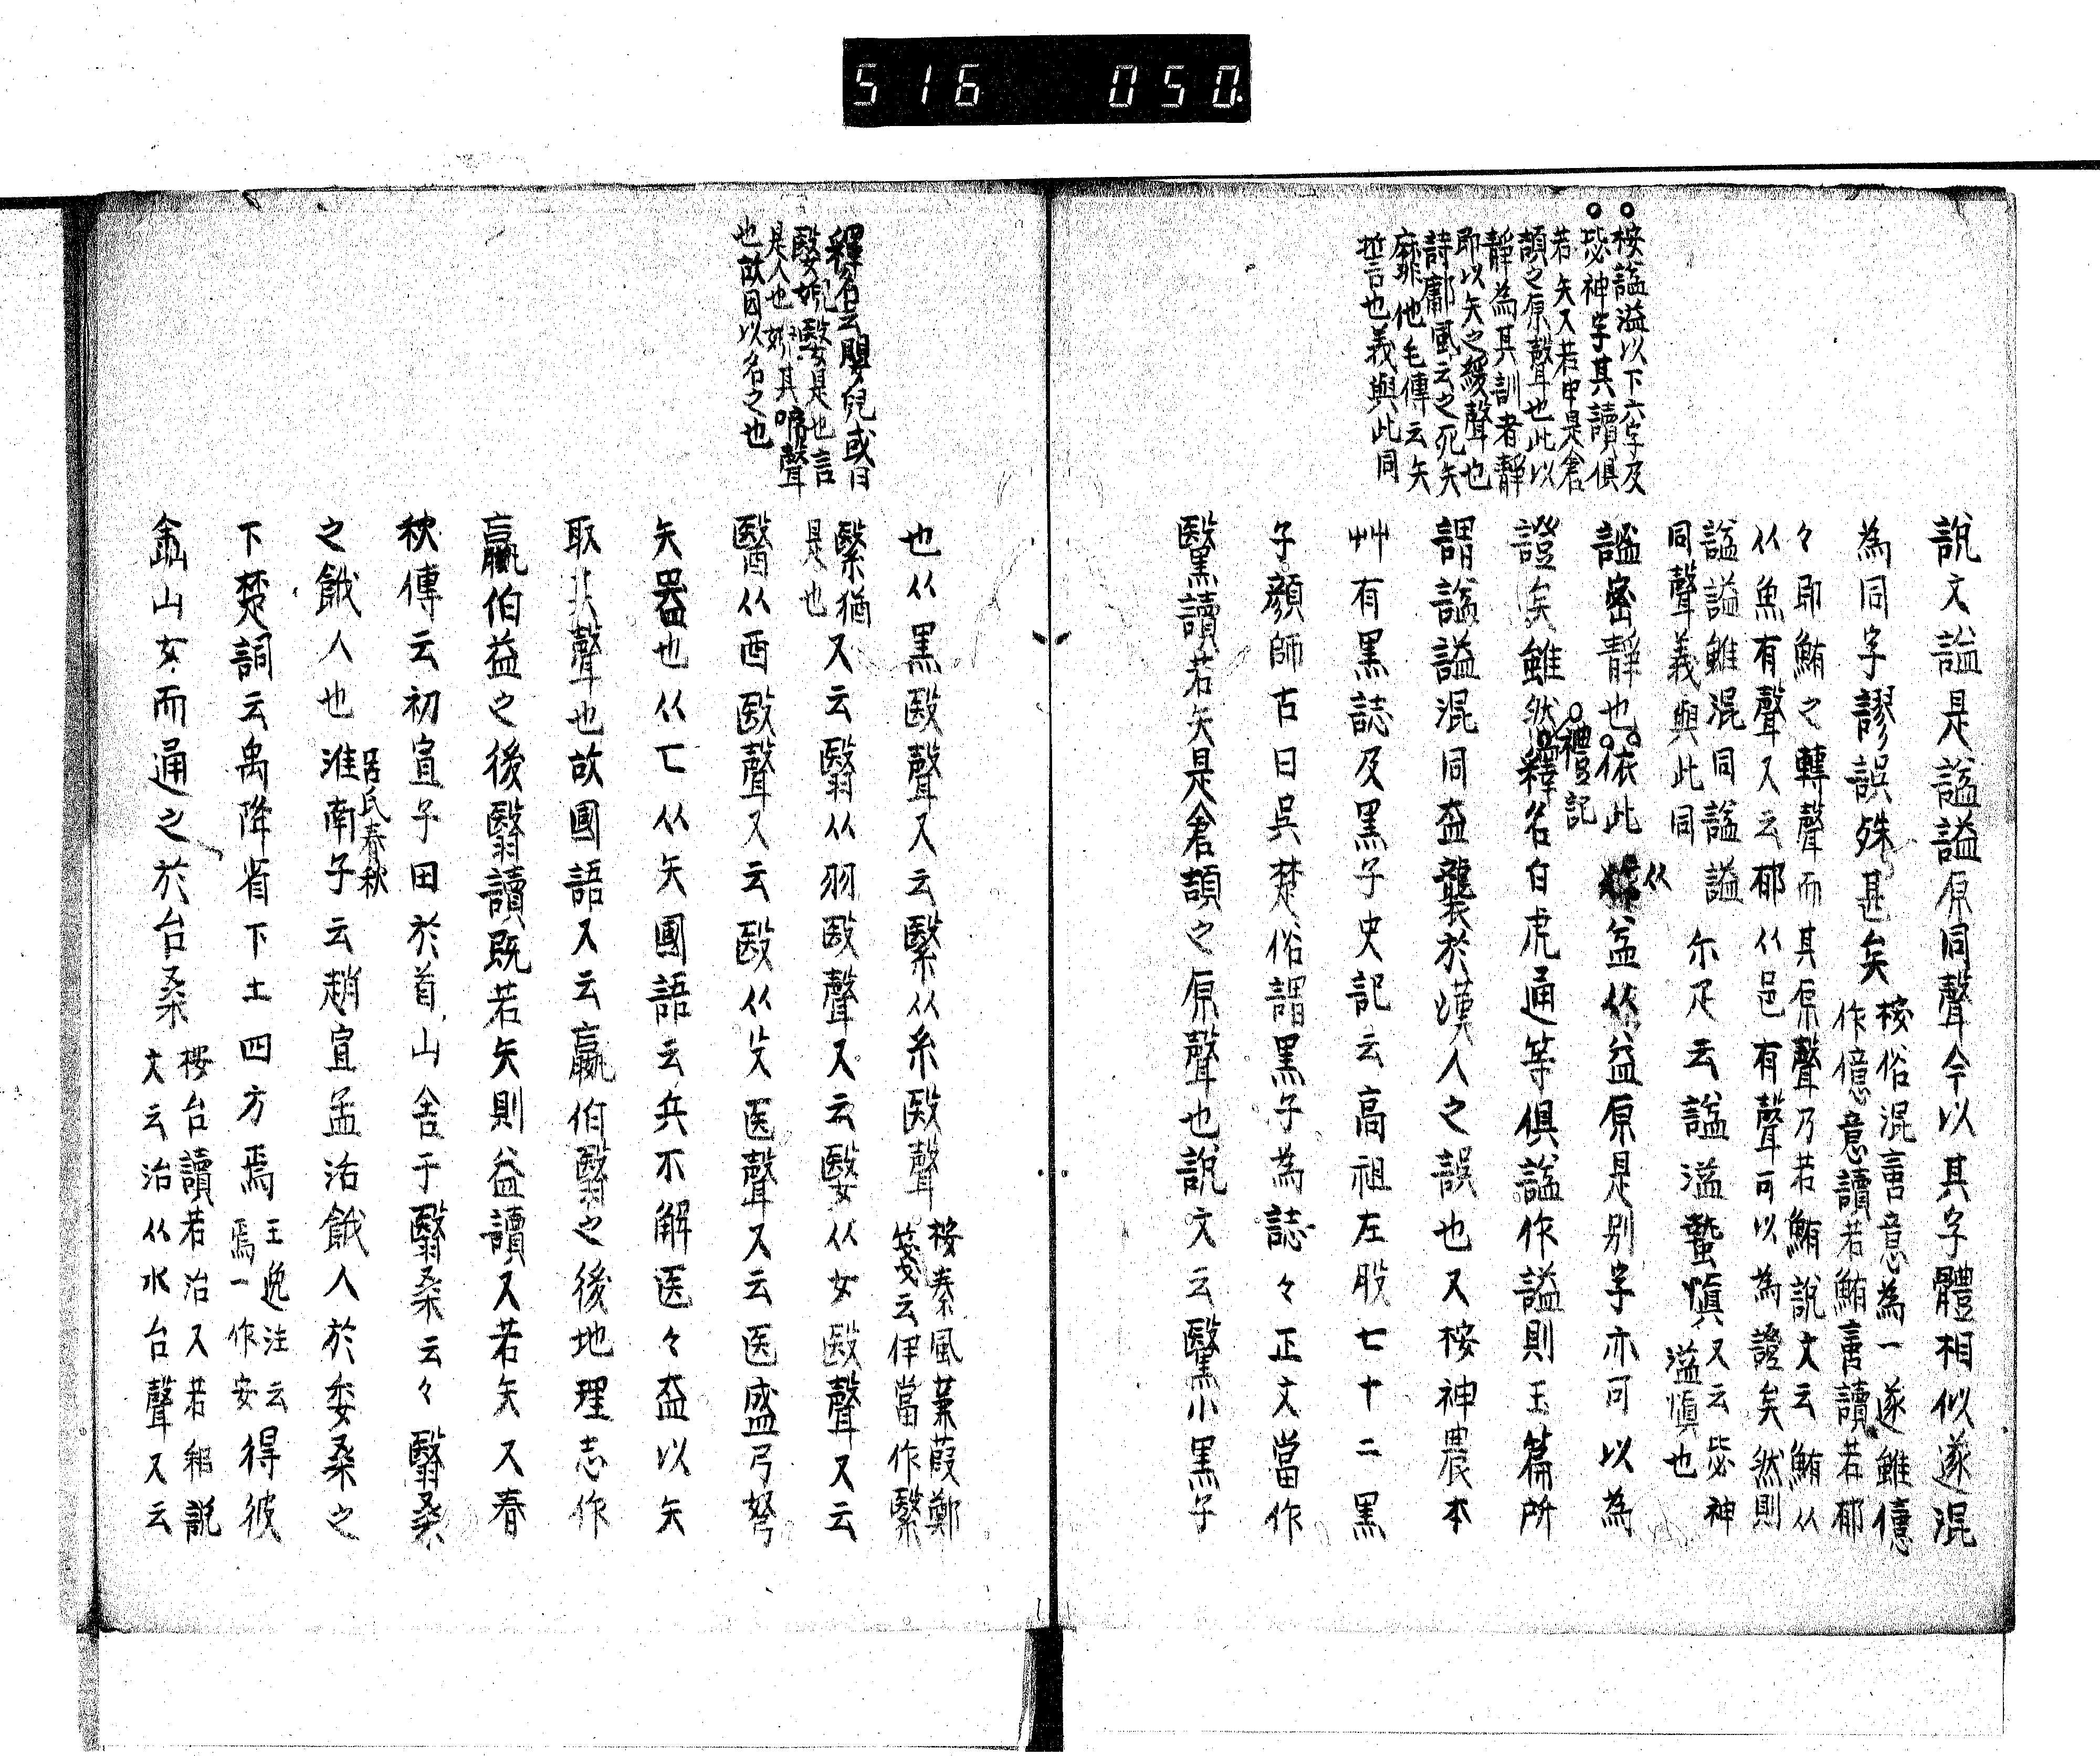 516 050
桉謚溢以下六字及
毖神字其讀俱
若矢又若申是倉
頡之原聲也此以
靜為其訓者靜
即以矢之緩聲也
詩鄘風云之死矢
靡他毛傳云矢
誓言也義與此同
說文謚是謚謚原同聲今以其字體相似遂混
為同字謬誤殊甚矣
桉俗混啻意為一遂雖億
作億意讀若鮪啻讀若郁
々即鮪之轉聲而其原聲乃若鮪說文云鮪从
从魚有聲又云郁从邑有聲可以為證矣然則
謚謚雖混同謚謚
同聲義與此同
尓疋云謚溢蟄慎
又云毖神
溢慎也
謐密靜也依此从益从益原是別字亦可以為
證矣雖然釋名白虎通等俱謚作謚則玉篇所
禮記
謂謚謚混同益襲於漢人之誤也又桉神農本
艸有黑誌及黑子史記云高祖左股七十二黑
子顏師古曰吳楚俗謂黑子為誌々正文當作
黳讀若矢是倉頡之原聲也說文云黳小黑子
釋名云嬰兒或曰
嫛婗嫛是也言
是人也婗其啼聲
也故因以名之也
也从黑殹聲又云繄从糸殹聲
桉秦風蒹葭鄭
箋云伊當作繄
繄猶
是也
又云翳从羽殹聲又云嫛从女殹聲又云
醫从酉殹聲又云殹从殳医聲又云医盛弓弩
矢器也从匚从矢國語云兵不解医々益以矢
取其聲也故國語又云嬴伯翳之後地理志作
嬴伯益之後翳讀既若矢則益讀又若矢又春
秋傳云初宣子田於首山舍于翳桑云々翳桑
之餓人也淮南子云趙宣孟活餓人於委桑之
呂氏春秋
下楚詞云禹降省下土四方焉
王逸注云
焉一作安
得彼
嵞山女而通之於台桑
桉台讀若治又若耜說
文云治从水台聲又云